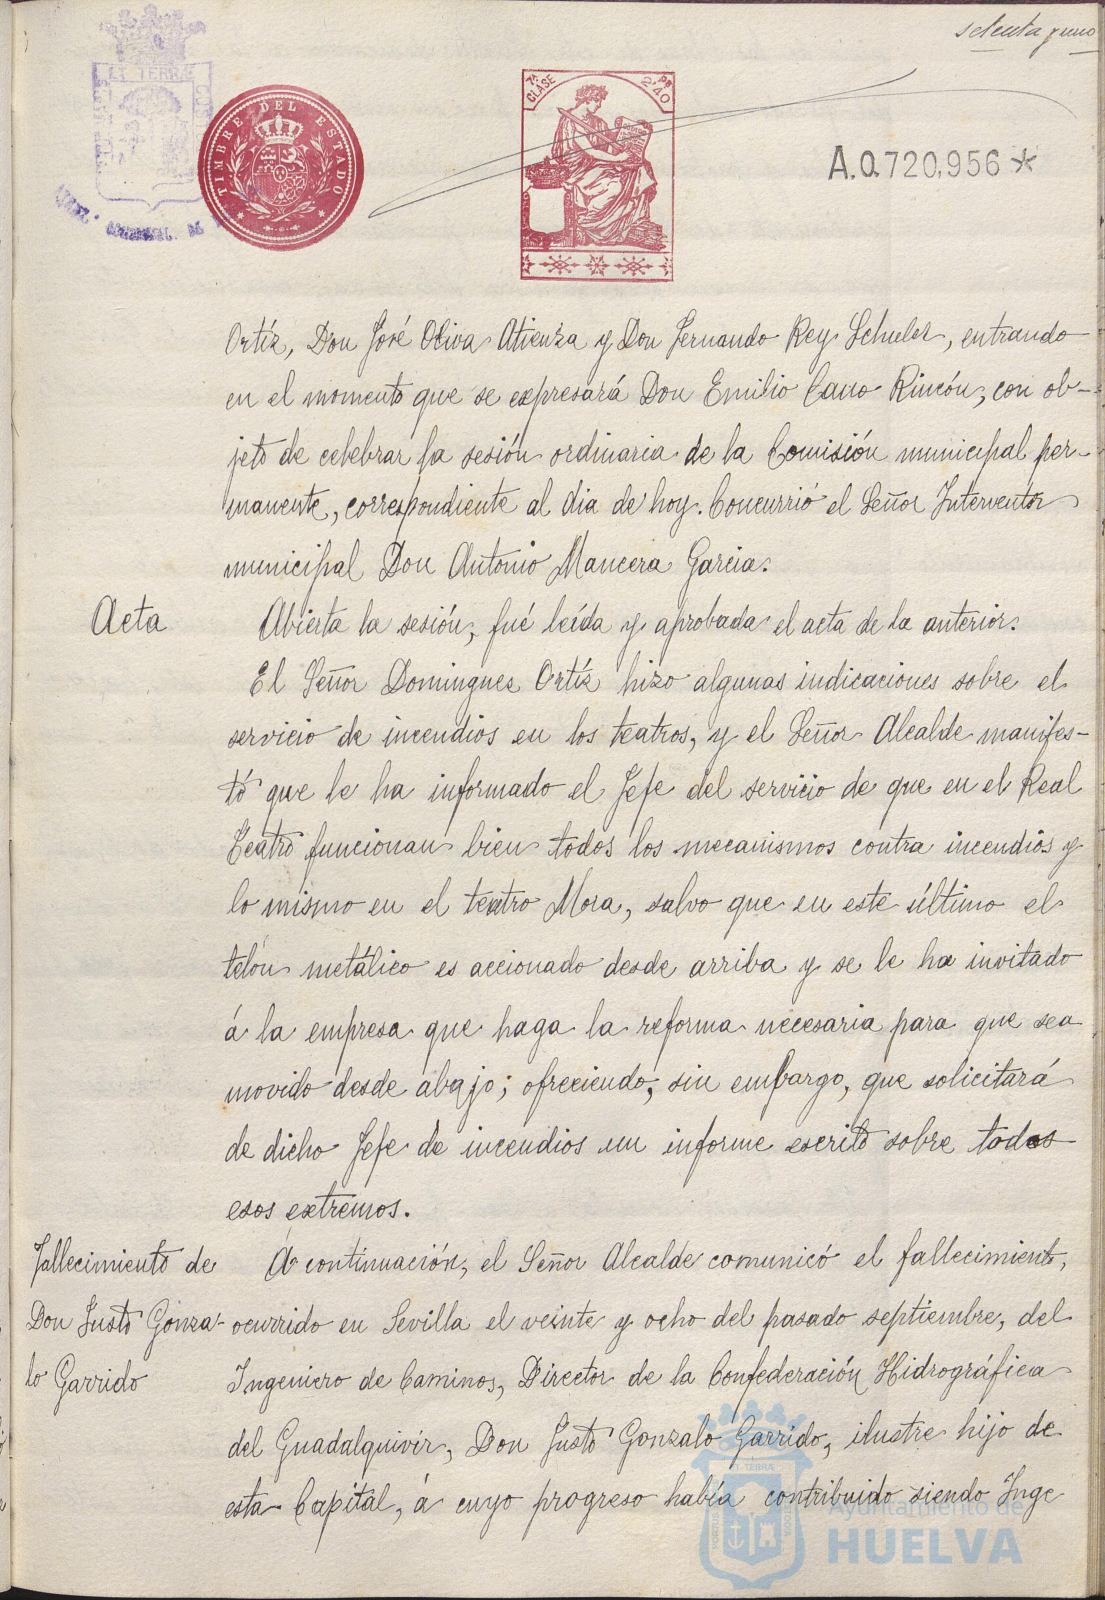 setenta y uno
TIMBRE DEL ESTADO
7ª CLASE
2'40
A.0.720,956 *
Ortíz, Don José Oliva Atienza y Don Fernando Rey Schuler, entrando
en el momento que se expresará Don Emilio Cano Rincón, con ob-
jeto de celebrar la sesión ordinaria de la Comisión municipal per-
manente, correspondiente al dia de hoy. Concurrió el Señor Interventor
municipal Don Antonio Mancera Garcia.
Acta
Abierta la sesión, fué leída y aprobada el acta de la anterior.
El Señor Dominguez Ortíz hizo algunas indicaciones sobre el
servicio de incendios en los teatros, y el Señor Alcalde manifes-
tó que le ha informado el Jefe del servicio de que en el Real
Teatro funcionan bien todos los mecanismos contra incendios y
lo mismo en el teatro Mora, salvo que en este último el
telón metálico es accionado desde arriba y se le ha invitado
á la empresa que haga la reforma necesaria para que sea
movido desde abajo; ofreciendo, sin embargo, que solicitará
de dicho Jefe de incendios un informe escrito sobre todos
esos extremos.
Fallecimiento de
Don Justo Gonza-
lo Garrido
A continuación, el Señor Alcalde comunicó el fallecimiento,
ocurrido en Sevilla el veinte y ocho del pasado septiembre, del
Ingeniero de Caminos, Director de la Confederación Hidrográfica
del Guadalquivir, Don Justo Gonzalo Garrido, ilustre hijo de
esta Capital, á cuyo progreso había contribuido siendo Inge
Ayuntamiento de
HUELVA